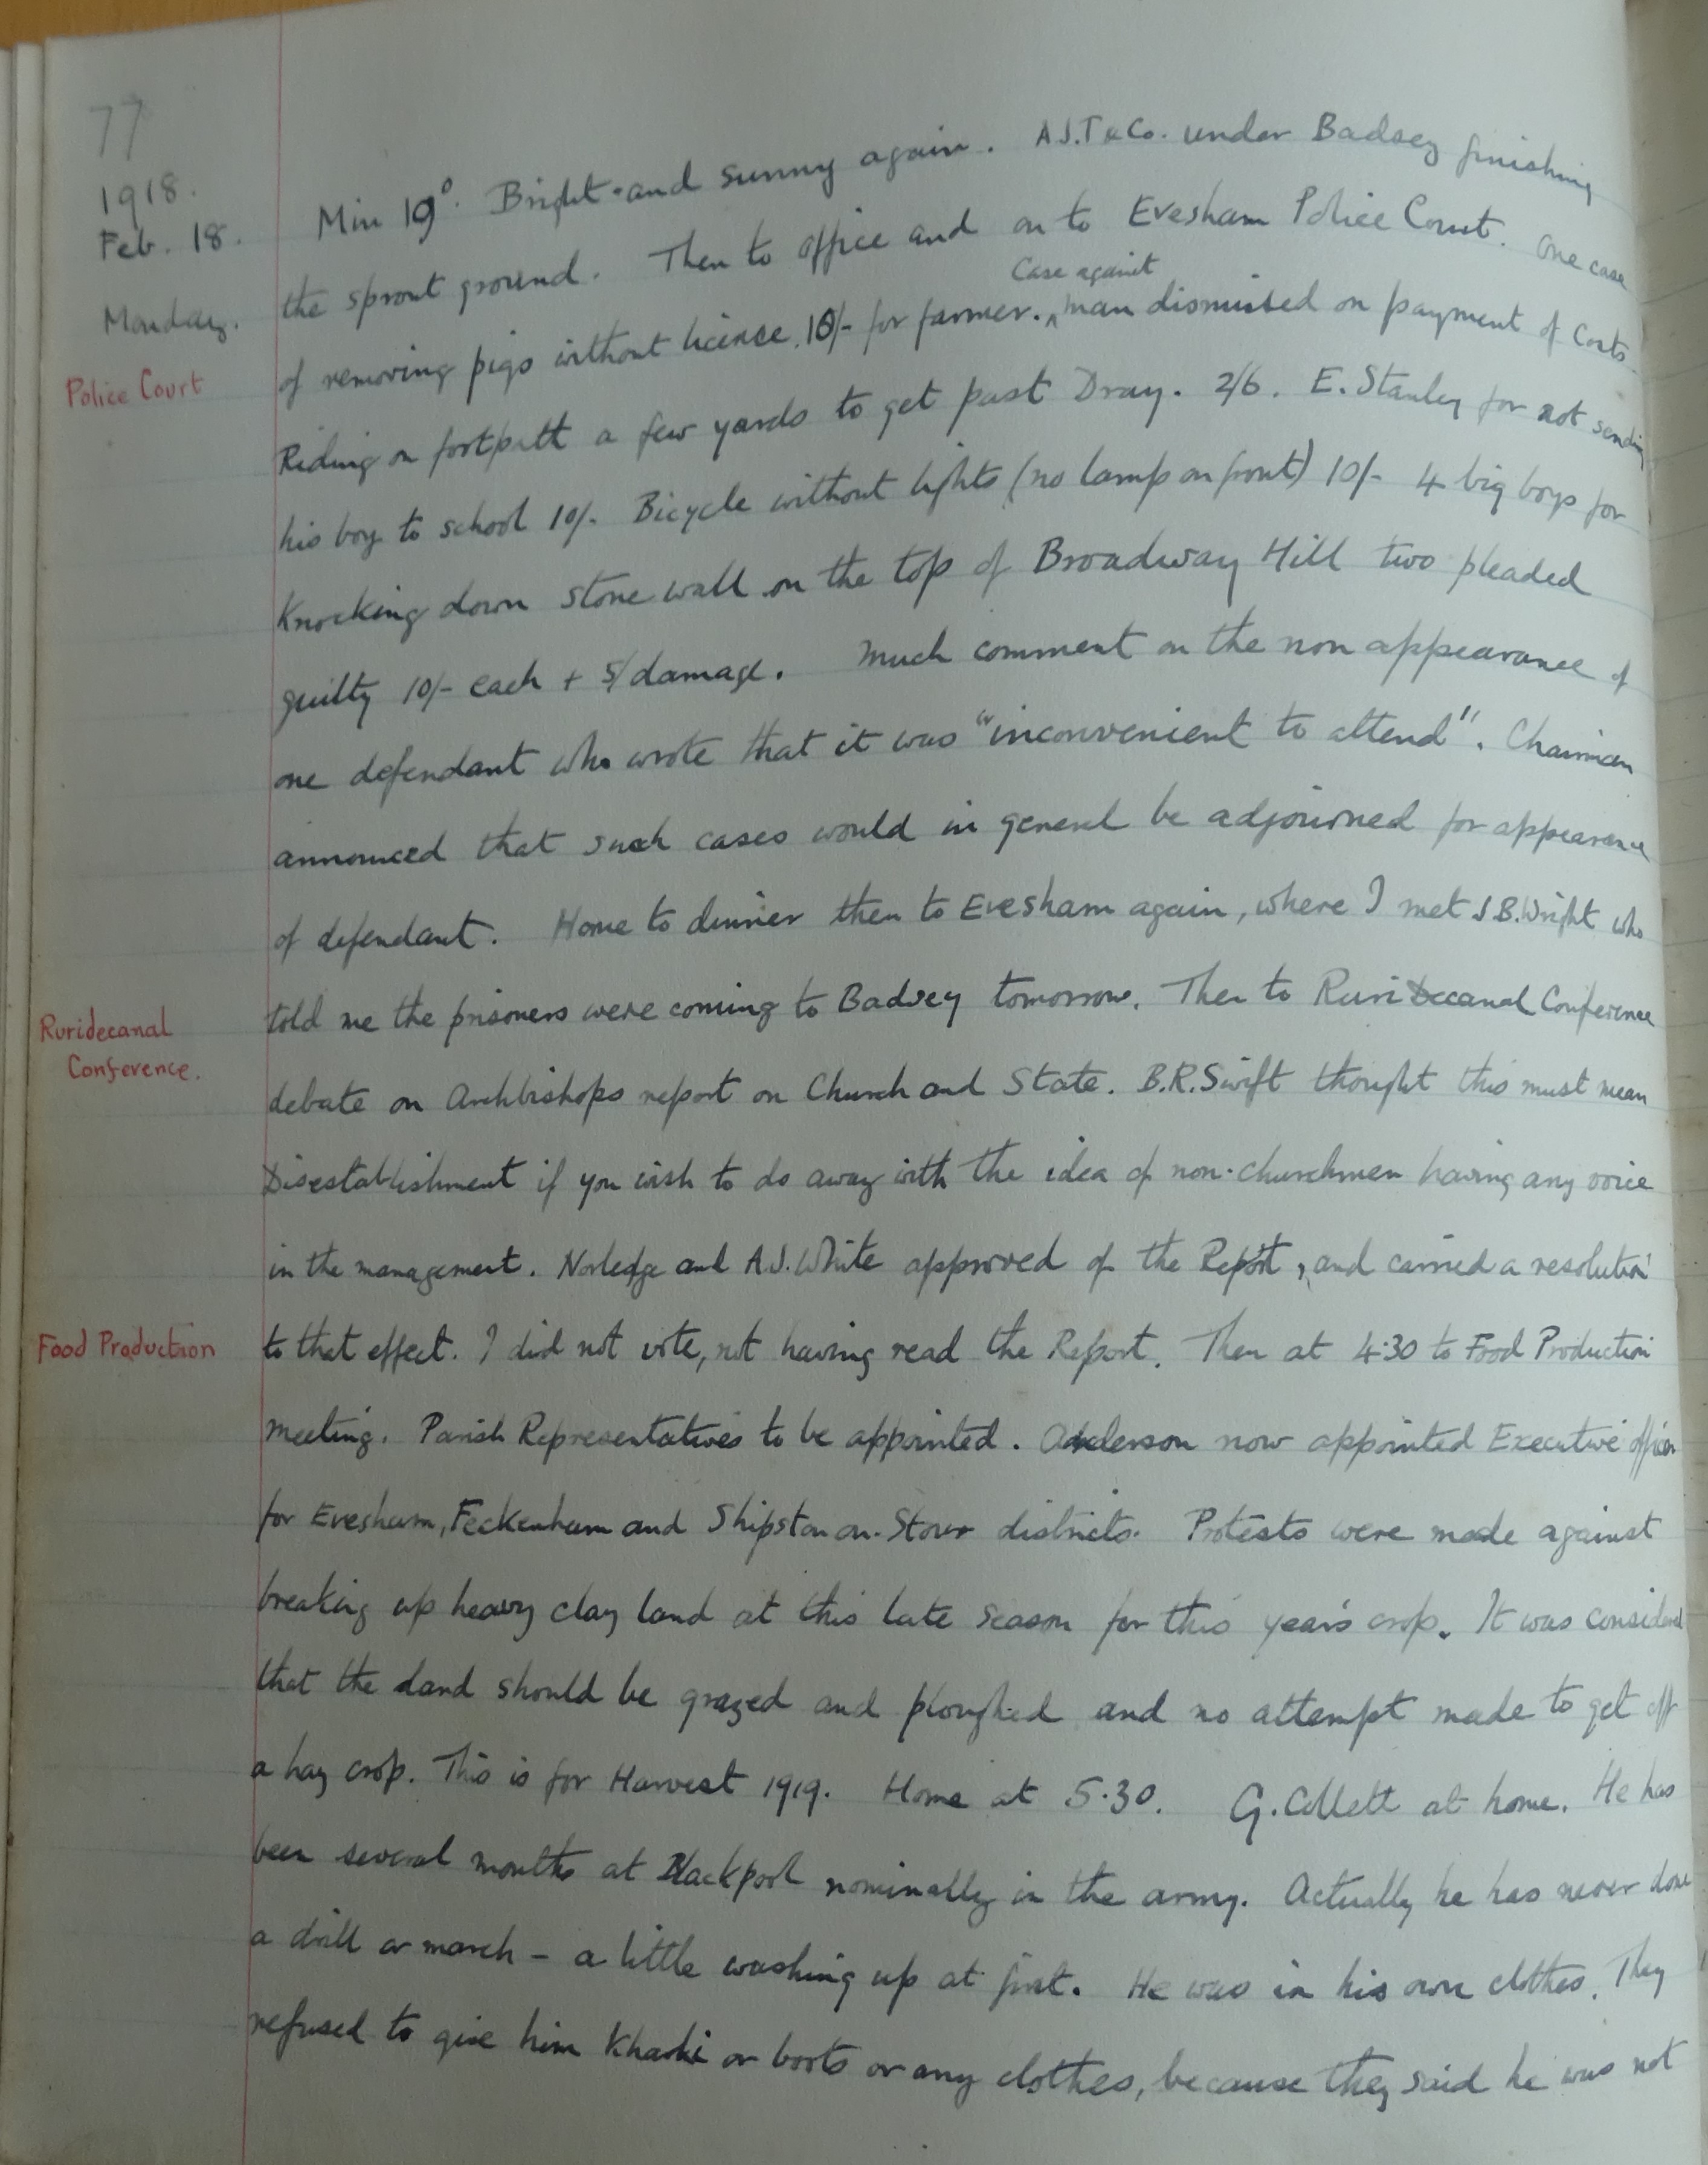 77
1918.
Feb. 18.
Monday.
Min 19°. Bright and sunny again. A.J.T & Co. under Badsey finishing
the sprout ground. Then to office and on to Evesham Police Court. One case
Case against
of removing pigs without licence 10/- for farmer. ^ man dismissed on payment of costs.
Police Court
Riding on footpath a few yards to get past Dray. 2/6. E. Stanley for not sending
his boy to school 10/-. Bicycle without lights (no lamp on front) 10/- 4 big boys for
Knocking down stone wall on the top of Broadway Hill two pleaded
guilty 10/- each + 5/ damage. Much comment on the non appearance of
one defendant who wrote that it was "inconvenient to attend". Chairman
announced that such cases would in general be adjourned for appearance
of defendant. Home to dinner then to Evesham again, where I met J.B. Wright who
told me the prisoners were coming to Badsey tomorrow. Then to Ruridecanal Conference
Ruridecanal
Conference.
debate on Archbishops report on Church and State. B.R. Swift thought this must mean
Disestablishment if you wish to do away with the idea of non-churchmen having any voice
in the management. Norledge and A.J. White approved of the Report, and carried a resolution
Food Production
to that effect. I did not vote, not having read the Report. Then at 4:30 to Food Production
meeting. Parish Representatives to be appointed. Anderson now appointed Executive officer
for Evesham, Feckenham and Shipston on-Stour districts. Protests were made against
breaking up heavy clay land at this late season for this year's crop. It was considered
that the land should be grazed and ploughed and no attempt made to get off
a hay crop. This is for Harvest 1919. Home at 5.30. G. Collett at home. He has
been several months at Blackpool nominally in the army. Actually he has never done
a drill or march – a little washing up at first. He was in his own clothes. They
refused to give him Khaki or boots or any clothes, because they said he was not